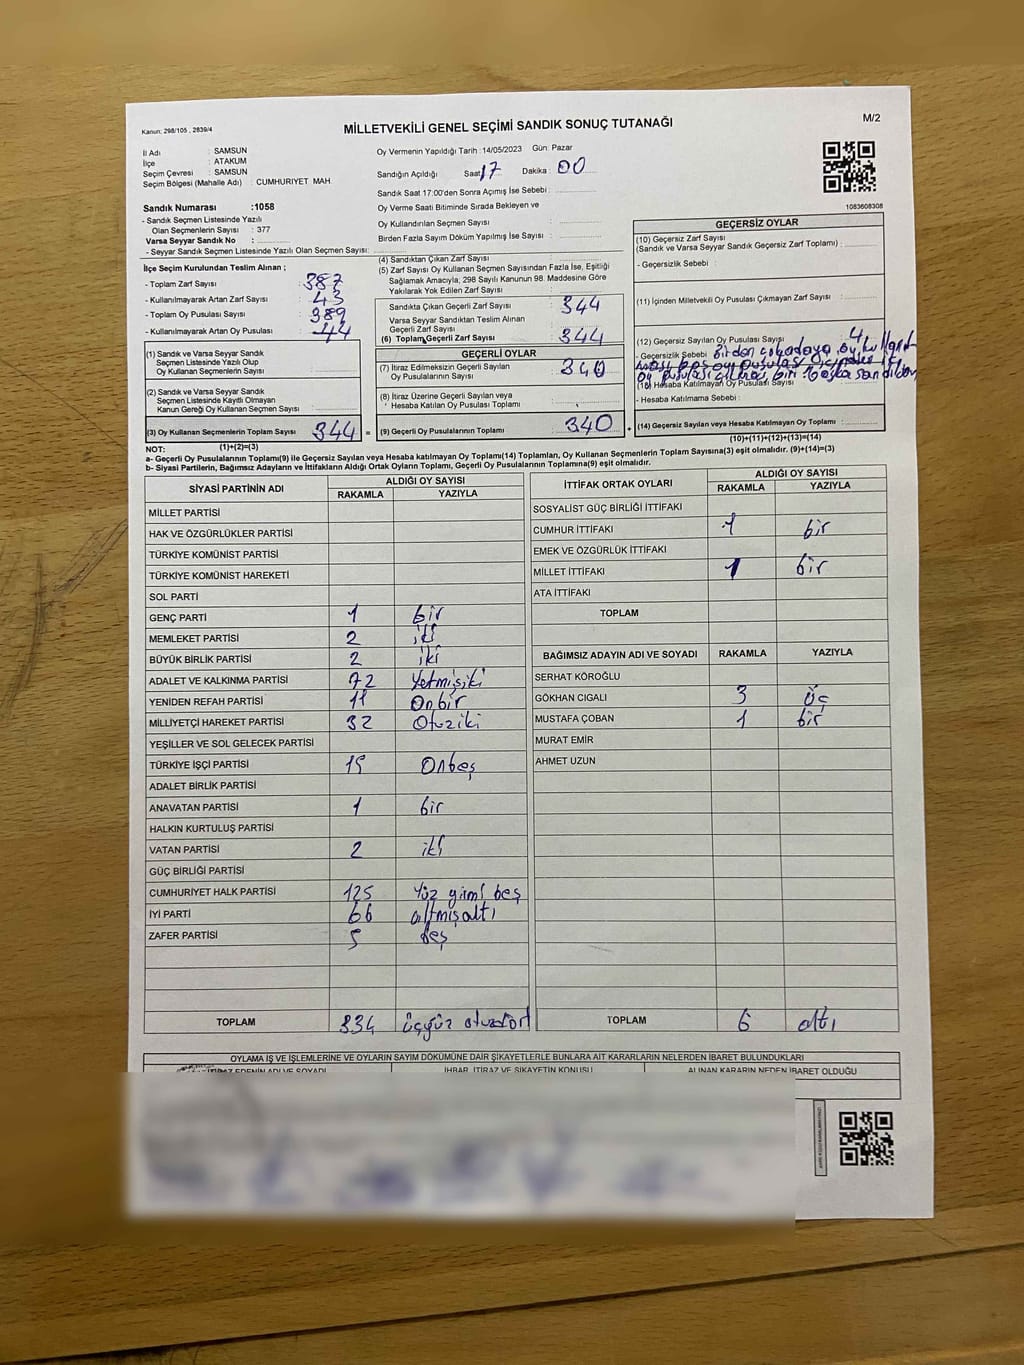 Kanun: 298/105 , 2839/4
MİLLETVEKİLİ GENEL SEÇİMİ SANDIK SONUÇ TUTANAĞI
M/2
İl Adı : SAMSUN
İlçe : ATAKUM
Seçim Çevresi : SAMSUN
Seçim Bölgesi (Mahalle Adı) : CUMHURIYET MAH.
Oy Vermenin Yapıldığı Tarih : 14/05/2023 Gün: Pazar
Sandığın Açıldığı Saat 17 Dakika : 00
Sandık Saat 17:00'den Sonra Açımış İse Sebebi :
Oy Verme Saati Bitiminde Sırada Bekleyen ve
Oy Kullandırılan Seçmen Sayısı :
Birden Fazla Sayım Döküm Yapılmış İse Sayısı :
1083608308
Sandık Numarası :1058
- Sandık Seçmen Listesinde Yazılı
Olan Seçmenlerin Sayısı : 377
Varsa Seyyar Sandık No :
- Seyyar Sandık Seçmen Listesinde Yazılı Olan Seçmen Sayısı:
İlçe Seçim Kurulundan Teslim Alınan ;
- Toplam Zarf Sayısı : 387
- Kullanılmayarak Artan Zarf Sayısı : 43
- Toplam Oy Pusulası Sayısı : 389
- Kullanılmayarak Artan Oy Pusulası : 44
(1) Sandık ve Varsa Seyyar Sandık
Seçmen Listesinde Yazılı Olup
Oy Kullanan Seçmenlerin Sayısı :
(2) Sandık ve Varsa Seyyar Sandık
Seçmen Listesinde Kayıtlı Olmayan
Kanun Gereği Oy Kullanan Seçmen Sayısı :
(3) Oy Kullanan Seçmenlerin Toplam Sayısı : 344 =
(1)+(2)=(3)
(4) Sandıktan Çıkan Zarf Sayısı :
(5) Zarf Sayısı Oy Kullanan Seçmen Sayısından Fazla İse, Eşitliği
Sağlamak Amacıyla; 298 Sayılı Kanunun 98. Maddesine Göre
Yakılarak Yok Edilen Zarf Sayısı :
Sandıkta Çıkan Geçerli Zarf Sayısı : 344
Varsa Seyyar Sandıktan Teslim Alınan
Geçerli Zarf Sayısı :
(6) Toplam Geçerli Zarf Sayısı : 344
GEÇERLİ OYLAR
(7) İtiraz Edilmeksizin Geçerli Sayılan
Oy Pusulalarının Sayısı : 340
(8) İtiraz Üzerine Geçerli Sayılan veya
Hesaba Katılan Oy Pusulası Toplamı :
(9) Geçerli Oy Pusulalarının Toplamı : 340 +
GEÇERSİZ OYLAR
(10) Geçersiz Zarf Sayısı
(Sandık ve Varsa Seyyar Sandık Geçersiz Zarf Toplamı) :
- Geçersizlik Sebebi :
(11) İçinden Milletvekili Oy Pusulası Çıkmayan Zarf Sayısı :
(12) Geçersiz Sayılan Oy Pusulası Sayısı : 4
- Geçersizlik Sebebi Birden
oy pusulası
(13) Hesaba Katılmayan Oy Pusulası Sayısı
- Hesaba Katılmama Sebebi :
(14) Geçersiz Sayılan veya Hesaba Katılmayan Oy Toplamı :
(10)+(11)+(12)+(13)=(14)
NOT:
a- Geçerli Oy Pusulasının Toplamı(9) ile Geçersiz Sayılan veya Hesaba katılmayan Oy Toplamı(14) Toplamları, Oy Kullanan Seçmenlerin Toplam Sayısına(3) eşit olmalıdır. (9)+(14)=(3)
b- Siyasi Partilerin, Bağımsız Adayların ve İttifakların Aldığı Ortak Oyların Toplamı, Geçerli Oy Pusulalarının Toplamına(9) eşit olmalıdır.
SİYASİ PARTİNİN ADI ALDIĞI OY SAYISI
RAKAMLA YAZIYLA
MİLLET PARTİSİ
HAK VE ÖZGÜRLÜKLER PARTİSİ
TÜRKİYE KOMÜNİST PARTİSİ
TÜRKİYE KOMÜNİST HAREKETİ
SOL PARTİ
GENÇ PARTİ 1 bir
MEMLEKET PARTİSİ 2 iki
BÜYÜK BİRLİK PARTİSİ 2 iki
ADALET VE KALKINMA PARTİSİ 72 Yetmişiki
YENİDEN REFAH PARTİSİ 11 Onbir
MİLLİYETÇİ HAREKET PARTİSİ 32 Otuziki
YEŞİLLER VE SOL GELECEK PARTİSİ
TÜRKİYE İŞÇİ PARTİSİ 15 Onbeş
ADALET BİRLİK PARTİSİ
ANAVATAN PARTİSİ 1 bir
HALKIN KURTULUŞ PARTİSİ
VATAN PARTİSİ 2 iki
GÜÇ BİRLİĞİ PARTİSİ
CUMHURİYET HALK PARTİSİ 125 Yüz yirmi beş
İYİ PARTİ 66 altmışaltı
ZAFER PARTİSİ 5 beş
TOPLAM 334 üçyüz otuzdört
İTTİFAK ORTAK OYLARI ALDIĞI OY SAYISI
RAKAMLA YAZIYLA
SOSYALİST GÜÇ BİRLİĞİ İTTİFAKI
CUMHUR İTTİFAKI 1 bir
EMEK VE ÖZGÜRLÜK İTTİFAKI
MİLLET İTTİFAKI 1 bir
ATA İTTİFAKI
TOPLAM
BAĞIMSIZ ADAYIN ADI VE SOYADI RAKAMLA YAZIYLA
SERHAT KÖROĞLU
GÖKHAN CIGALI 3 üç
MUSTAFA ÇOBAN 1 bir
MURAT EMİR
AHMET UZUN
TOPLAM 6 altı
OYLAMA İŞ VE İŞLEMLERİNE VE OYLARIN SAYIM DÖKÜMÜNE DAİR ŞİKAYETLERLE BUNLARA AİT KARARLARIN NELERDEN İBARET BULUNDUKLARI
EDENİN ADI VE SOYADI İHBAR, İTİRAZ VE ŞİKAYETİN KONUSU ALINAN KARARIN NEDEN İBARET OLDUĞU